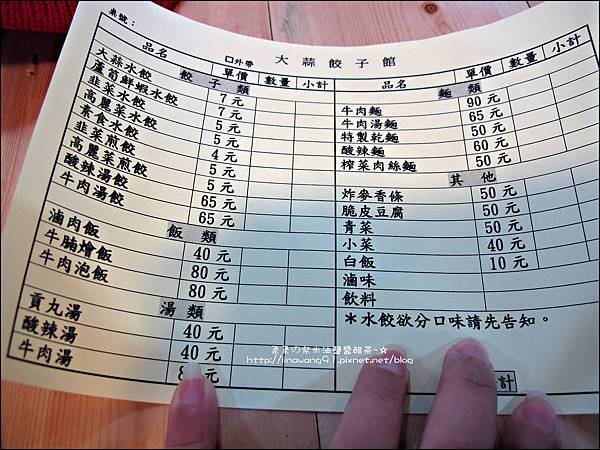 桌號：
口外帶 大蒜餃子館
品名 單價 數量 小計
餃子類
大蒜水餃 7元
蘆筍鮮蝦水餃 7元
韭菜水餃 5元
高麗菜水餃 5元
素食水餃 4元
韭菜煎餃 5元
高麗菜煎餃 5元
酸辣湯餃 65元
牛肉湯餃 65元
飯類
滷肉飯 40元
牛腩燴飯 80元
牛肉泡飯 80元
湯類
貢丸湯 40元
酸辣湯 40元
牛肉湯
品名 單價 數量 小計
麵類
牛肉麵 90元
牛肉湯麵 65元
特製乾麵 50元
酸辣麵 60元
榨菜肉絲麵 50元
其他
炸麥香條 50元
脆皮豆腐 50元
青菜 50元
小菜 40元
白飯 10元
滷味
飲料
＊水餃欲分口味請先告知。
計
柔柔の柴米油鹽醬醋茶~☆
http://linawang91.pixnet.net/blog